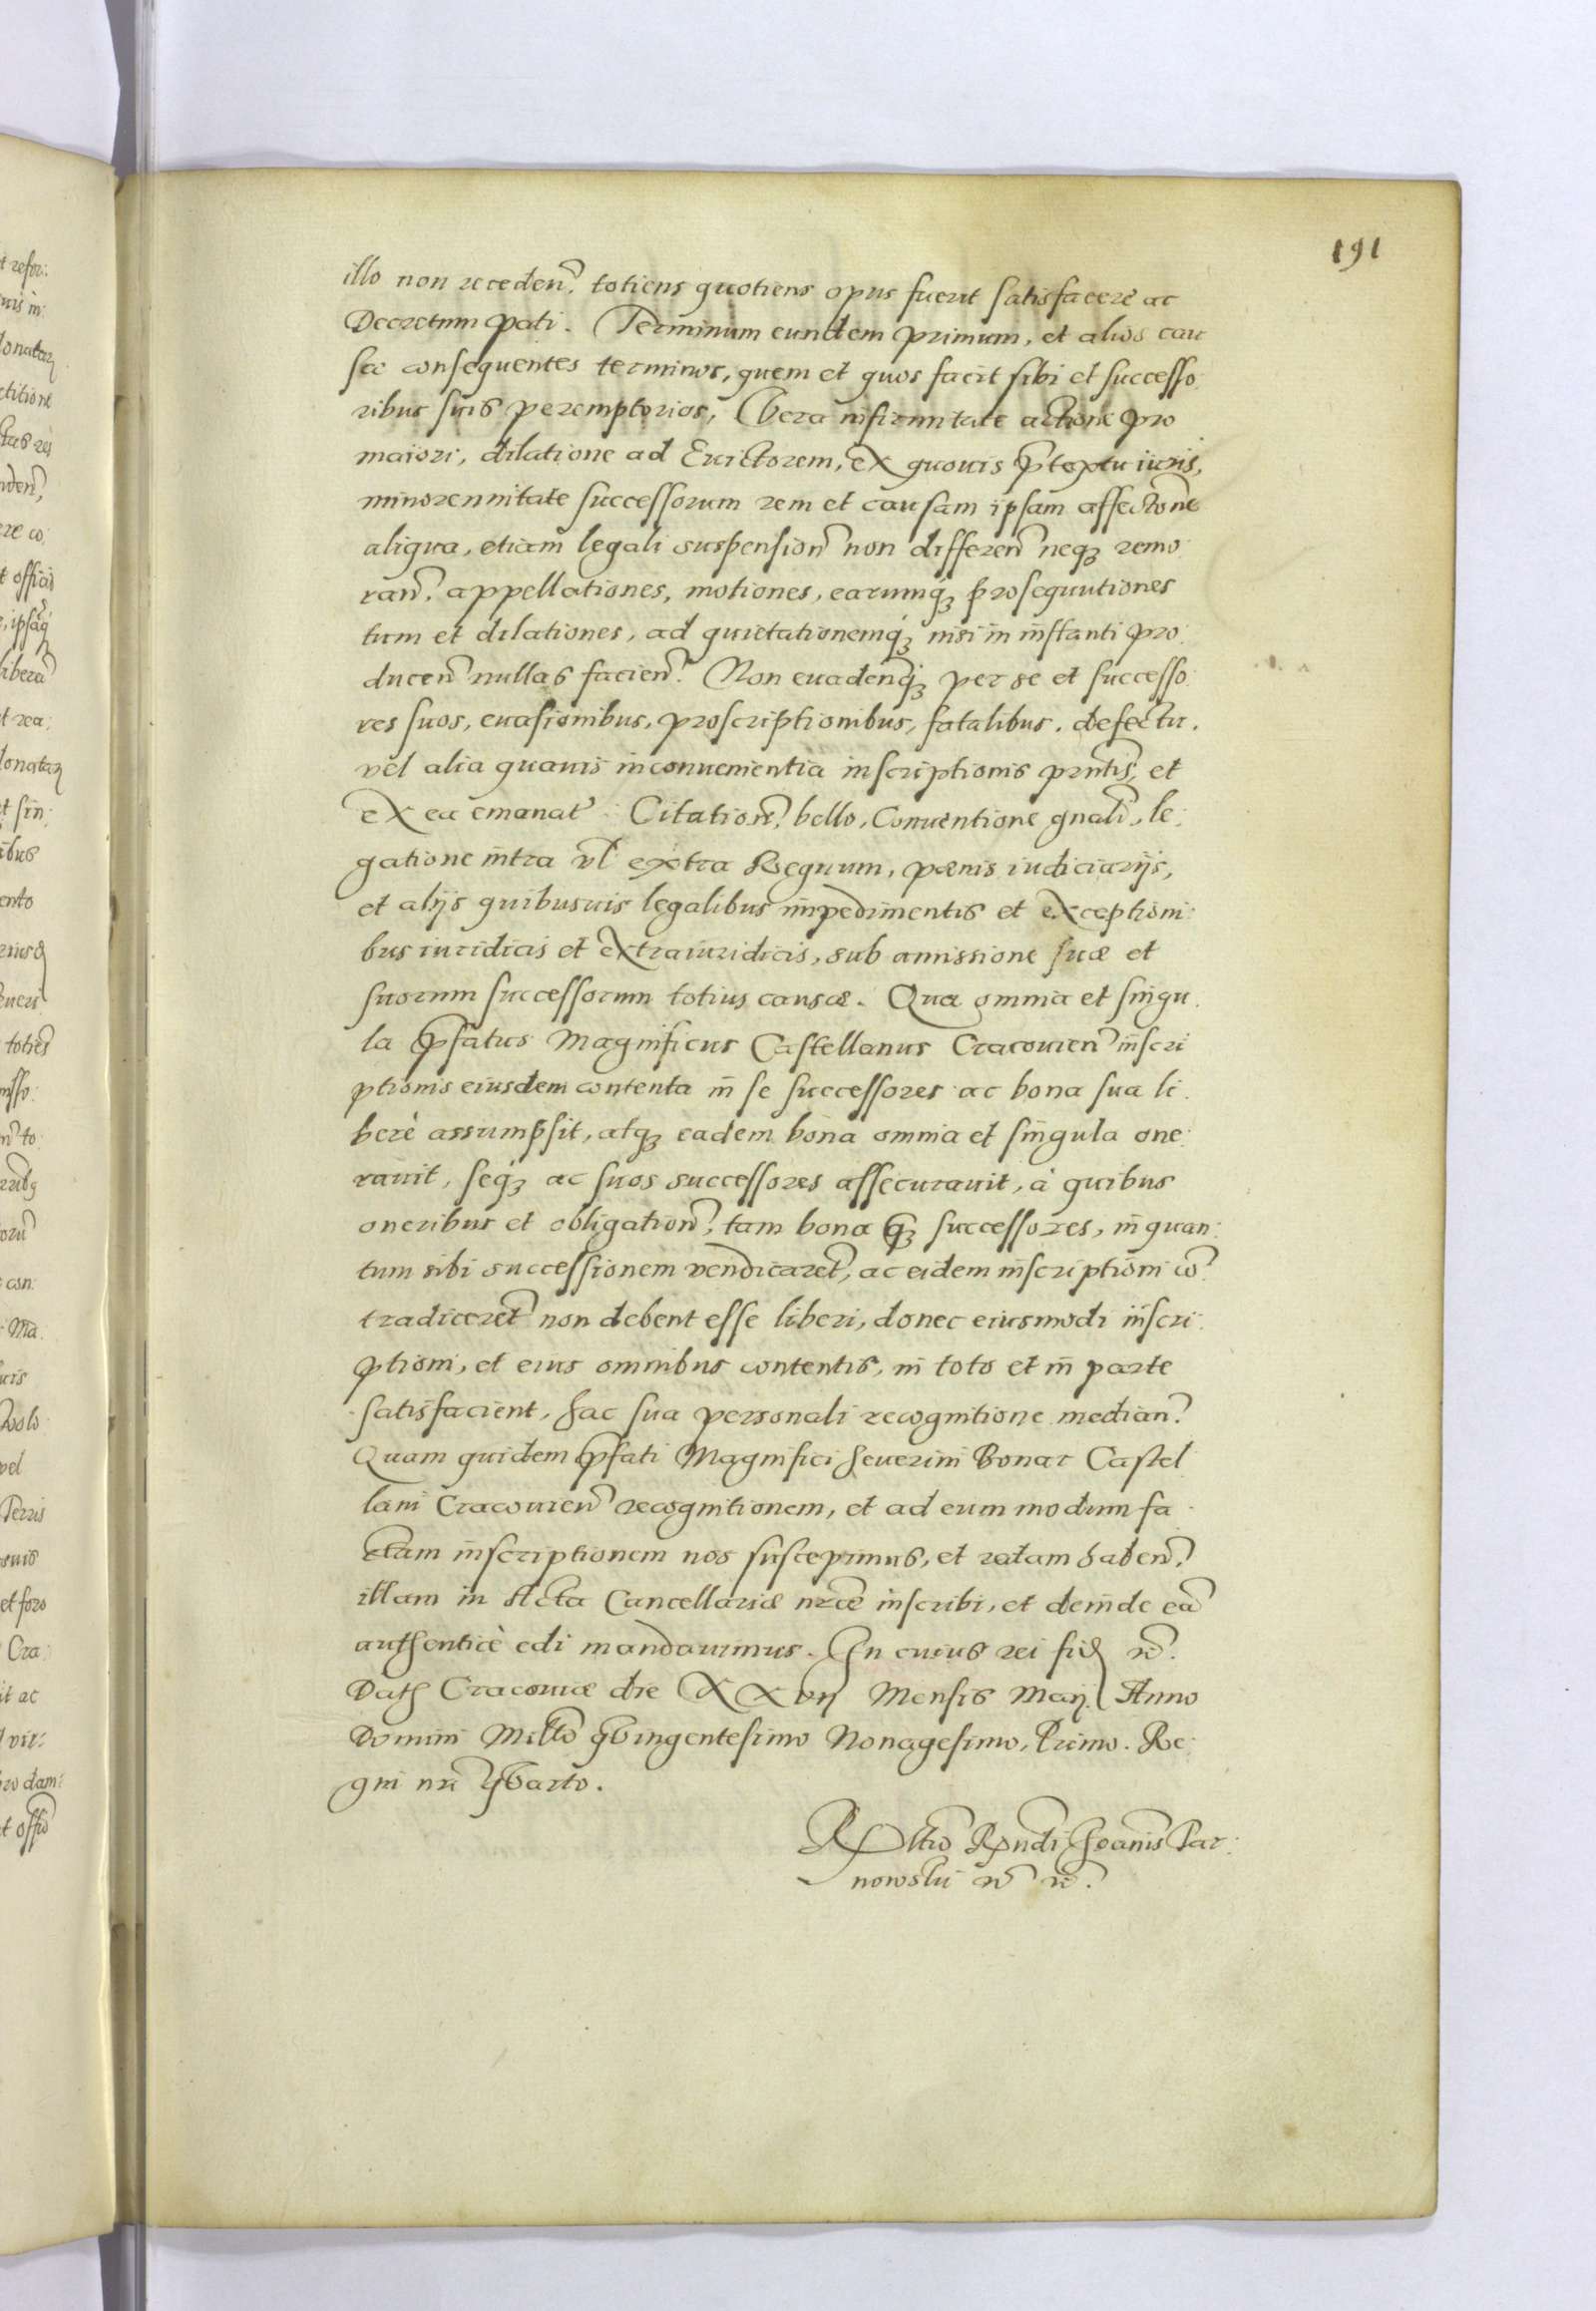 191
illo non receden̄. totiens quotiens opus fuerit satisfacere ac
Decretum pati. Terminum eundem primum, et alios cau
sæ consequentes terminos, quem et quos facit sibi et successo:
ribus suis peremptorios, Vera infirmitate actione pro
maiori, dilatione ad Euictorem, ex quouis p̄textu iuris,
minorennitate successorum rem et causam ipsam affectōne
aliqua, etiam legali suspension̄ non differen̄ neq₃ remo:
ran̄. appellationes, motiones, earumq́₃ prosequutiones
tum et dilationes, ad quietationemq́₃ nisi in instanti pro:
ducen̄ nullas facien̄. Non euadenq́₃ per se et successo:
res suos, euasionibus, proscriptionibus, fatalibus, defectu,
vel alia quauis inconuenientia inscriptionis pn̄tis, et
ex ea emanat̄. Citation̄. bello, Conuentione gn̄ali, le:
gatione intra vl̄ extra Regnum, pœnis iudiciarijs,
et alijs quibusuis legalibus impedimentis et exceptioni:
bus iuridicis et extraiuridicis, sub amissione suæ et
suorum successorum totius causæ. Quæ omnia et singu:
la p̄fatus Magnificus Castellanus Cracouien̄ inscri
ptionis eiusdem contenta in se successores ac bona sua li:
berè assumpsit, atq₃ eadem bona omnia et singula one:
rauit, seq́₃ ac suos successores assecurauit, à quibus
oneribus et obligation̄. tam bona q₃ successores, in quan:
tum sibi successionem vendicaren̄t, ac eidem inscriptioni cō
tradiceren̄t non debent esse liberi, donec eiusmodi inscri:
ptioni, et eius omnibus contentis, in toto et in parte
satisfacient, hac sua personali recognitione median̄.
Quam quidem p̄fati Magnifici Seuerini Bonar Castel
lani Cracouien̄ recognitionem, et ad eum modum fa
ctam inscriptionem nos suscepimus, et ratam haben̄.
illam in Acta Cancellariæ nr̄æ inscribi, et deinde eā
authenticè edi mandauimus. In cuius rei fid̄ ꝛc̄.
Dat̄ Cracouiæ die XXVII Mensis Maij Anno
Domini Mill̄o qVingentesimo Nonagesimo, Primo. Re:
gni nr̄i qVarto.
Rel̄tio R̄ndi Ioannis Tar:
nowski ꝛc̄ ꝛc̄.